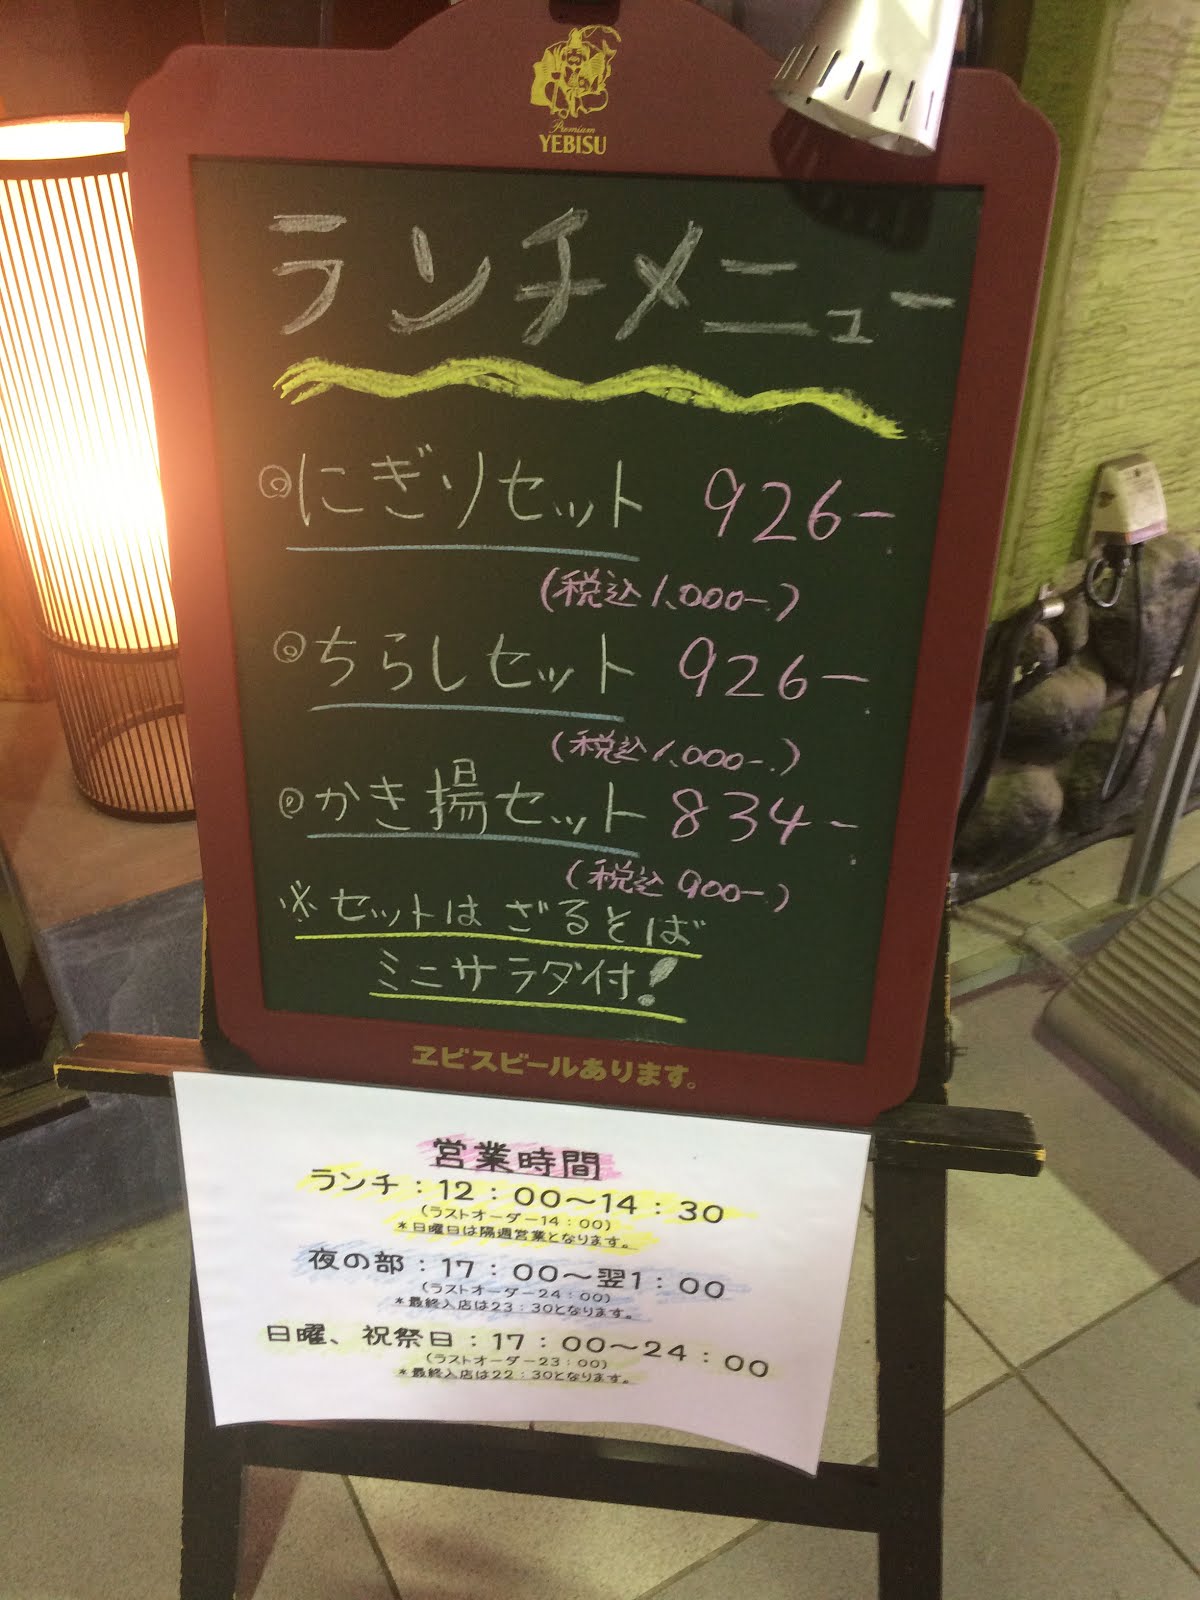 Premium
YEBISU
ランチメニュー
◎にぎりセット 926-
(税込1,000-)
◎ちらしセット 926-
(税込1,000-)
◎かき揚セット 834-
(税込900-)
※セットは ざるそば
ミニサラダ付!
ヱビスビールあります。
営業時間
ランチ：12：00～14：30
(ラストオーダー14：00)
*日曜日は隔週営業となります。
夜の部：17：00～翌1：00
(ラストオーダー24：00)
*最終入店は23：30となります。
日曜、祝祭日：17：00～24：00
(ラストオーダー23：00)
*最終入店は22：30となります。